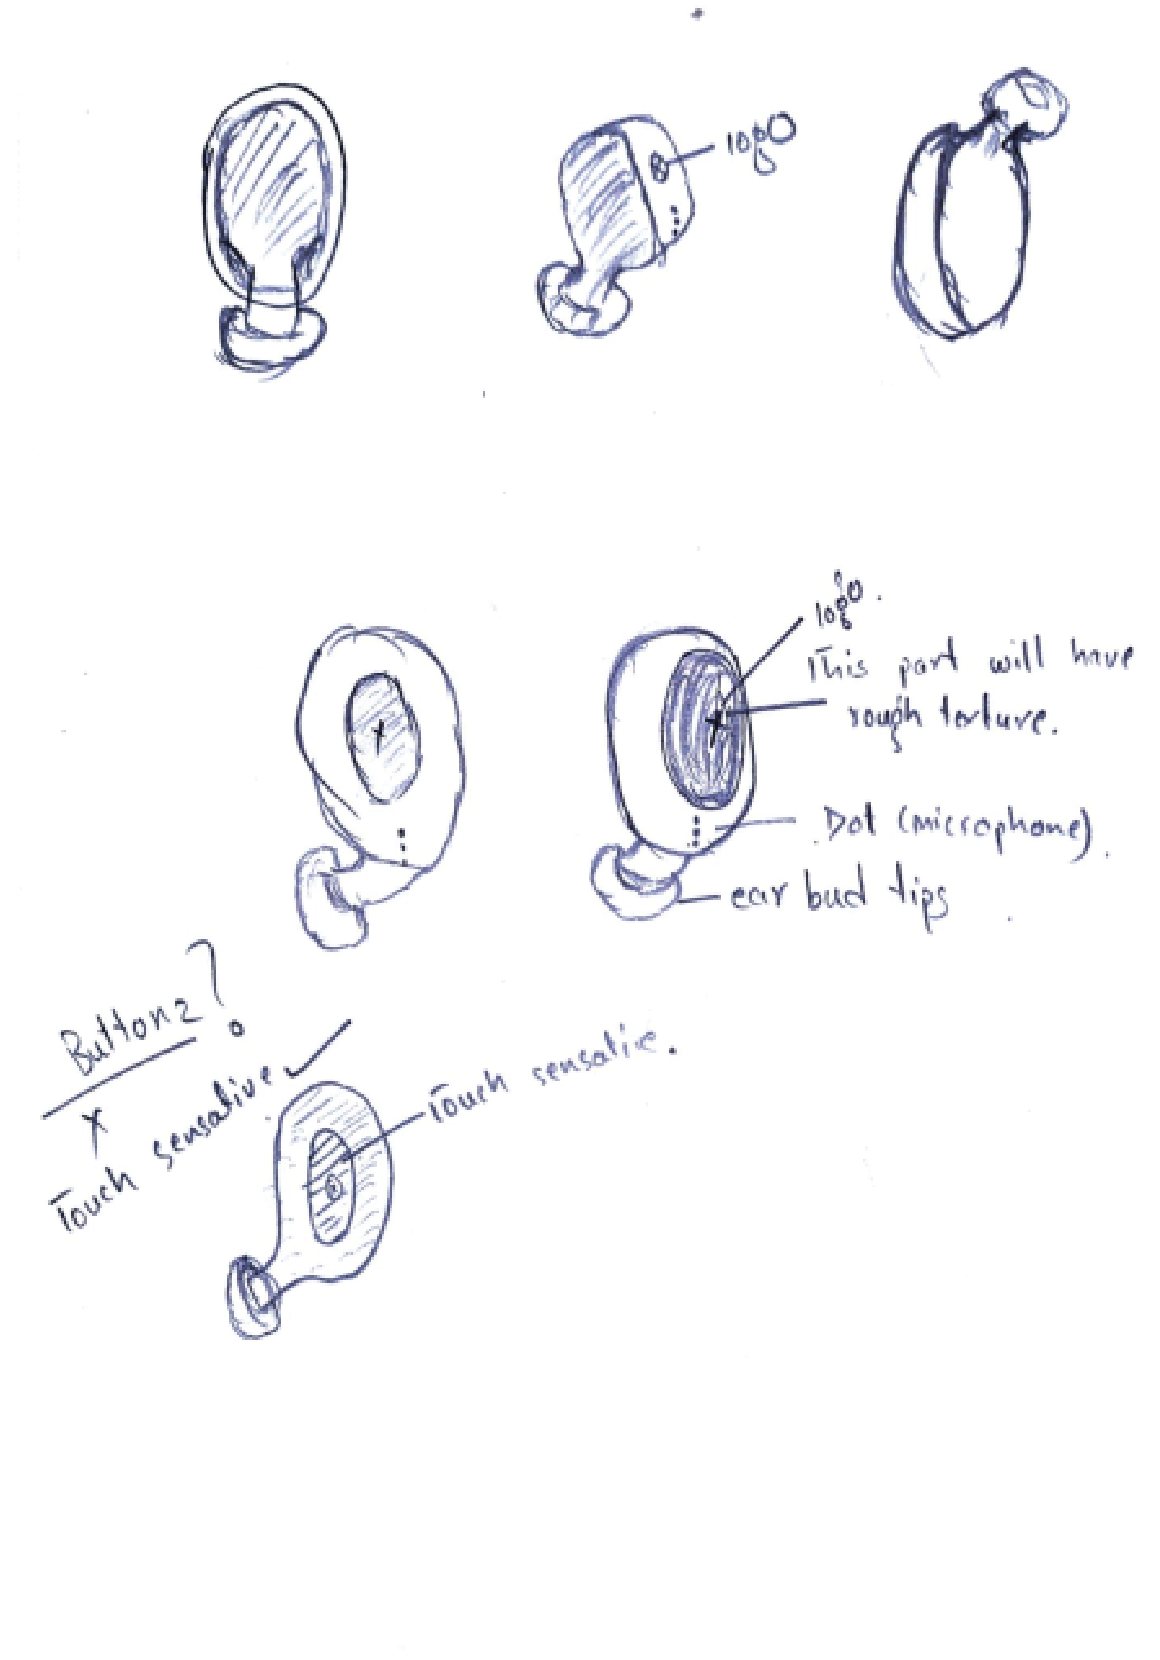 logo
logo.
This part will have
rough torture.
Dot (microphone)
ear bud tips
Buttonz?
X
Touch sensative ✓
Touch sensatie.